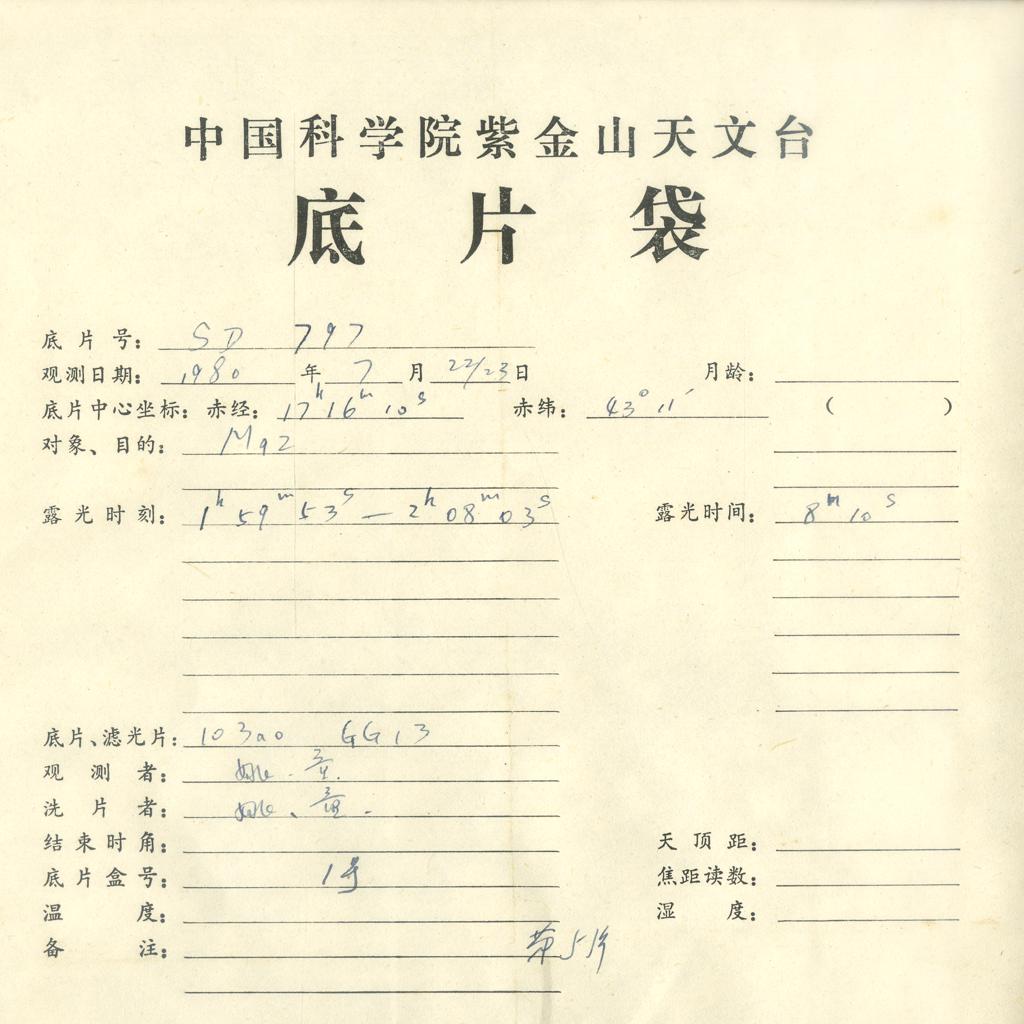 中国科学院紫金山天文台
底片袋
底片号: SD 797
观测日期: 1980 年 7 月 22/23 日 月龄:
底片中心坐标: 赤经: 17h 16m 10s 赤纬: 43° 11′ ( )
对象、目的: M92
露光时刻: 1h 59m 53s — 2h 08m 03s 露光时间: 8m 10s
底片、滤光片: 103a0 GG13
观测者: 姚.
洗片者: 姚、
结束时角: 天顶距:
底片盒号: 1号 焦距读数:
温度: 湿度:
备注: 第5片